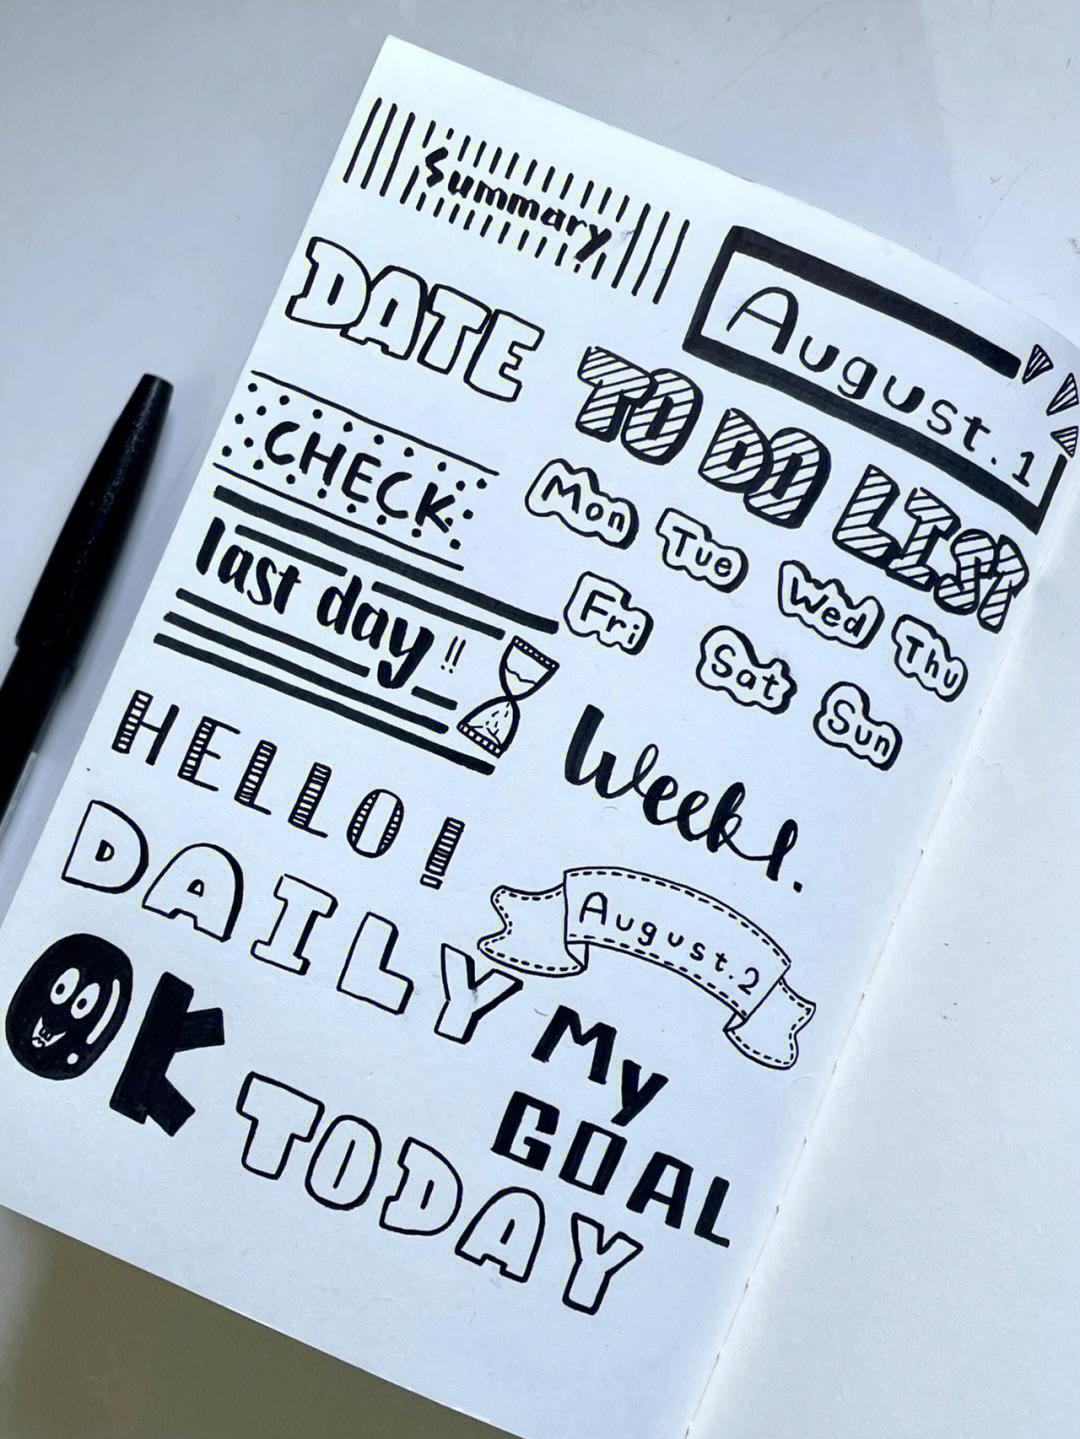 Summary
August.1
DATE
TO DO LIST
CHECK
Mon Tue Wed Thu
Fri Sat Sun
last day!!
Week1.
HELLO!
DAILY
August.2
OK
My
GOAL
TODAY